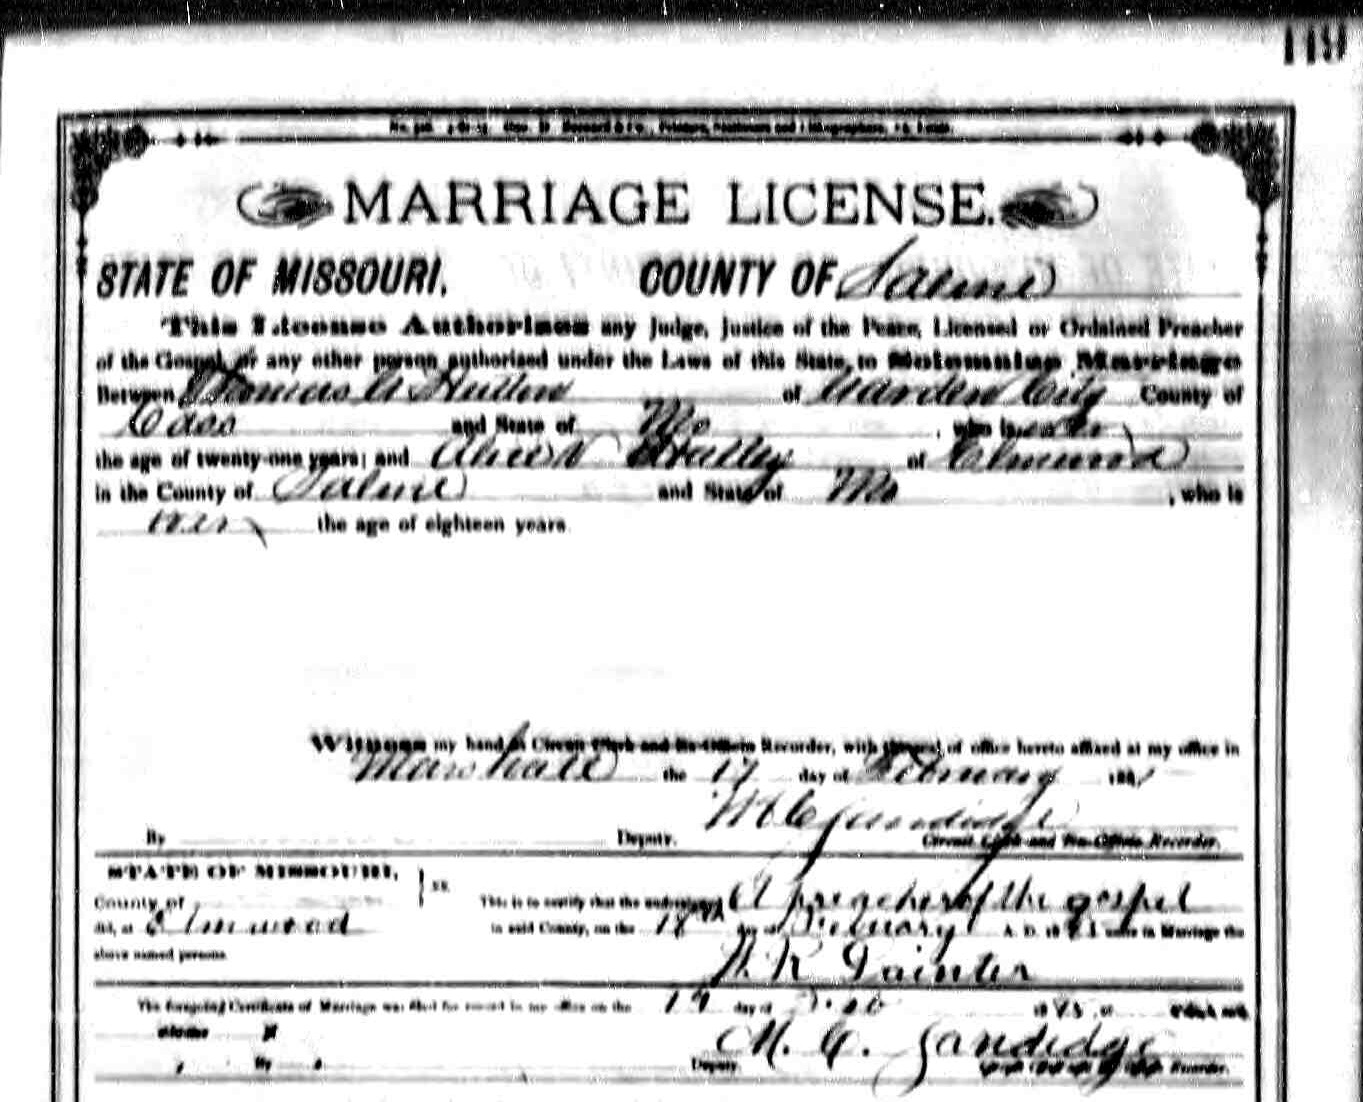 119
MARRIAGE LICENSE.
STATE OF MISSOURI. COUNTY OF Saline
This License Authorizes any Judge, Justice of the Peace, Licensed or Ordained Preacher
of the Gospel, or any other person authorized under the Laws of this State, to Solemnize Marriage
Between Thomas A of Garden City County of
Cass and State of Mo , who is over
the age of twenty-one years; and Alice N of Elmwood
in the County of Saline and State of Mo , who is
over the age of eighteen years.
Witness my hand as Circuit Clerk and Ex-Officio Recorder, with the seal of office hereto affixed at my office in
Marshall the 17 day of February 188
By Deputy. Circuit Clerk and Ex-Officio Recorder.
STATE OF MISSOURI, } ss.
County of This is to certify that the undersigned A preacher of the gospel
did, at Elmwood in said County, on the 18th day of February A. D. 18 unite in Marriage the
above named persons.
The foregoing Certificate of Marriage was filed for record in my office on the 19 day of
o'clock M
By Deputy. M. C. Sandidge Recorder.